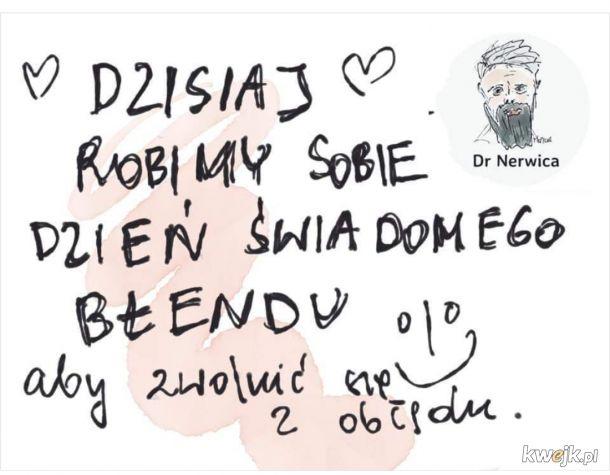 DZISIAJ
ROBIMY SOBIE
DZIEŃ ŚWIADOMEGO
BŁENDU
aby zwolnić się
z obłędu.
Dr Nerwica
kwejk.pl